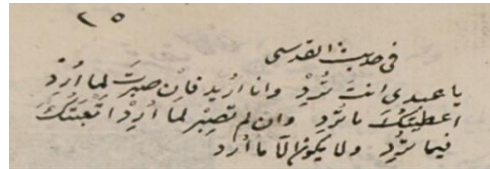 ٢٥
فى حديث القدسى
يا عبدى انت تُرِدْ وانا اُرِيد فاِن صبرتَ لِما اُرِدْ
اعطيتكَ ما تُرِد وان لم تصبِر لما اُرِدْ اتعبتكَ
فيما تُرِد ولا يكون الّا ما ارد